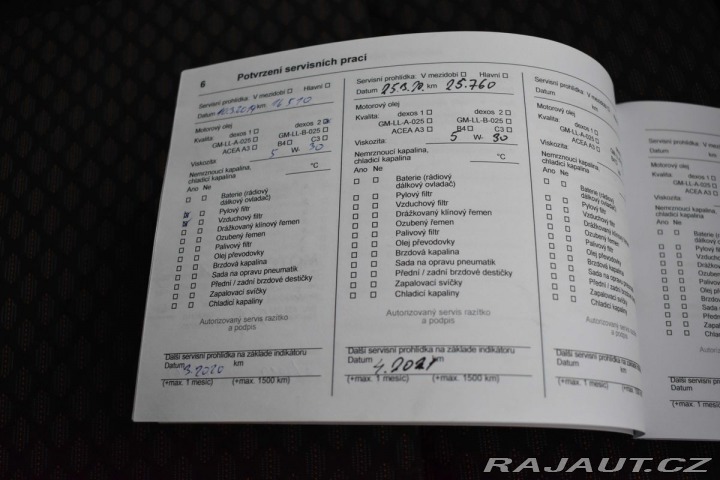 6 Potvrzení servisních prací
Servisní prohlídka: V mezidobí Hlavní
Datum km 16 510
Motorový olej
Kvalita: dexos 1 dexos 2
GM-LL-A-025 GM-LL-B-025
ACEA A3 B4 C3
Viskozita: 5 W- 30
Nemrznoucí kapalina, °C
chladicí kapalina
Ano Ne
Baterie (rádiový
dálkový ovladač)
Pylový filtr
Vzduchový filtr
Drážkovaný klínový řemen
Ozubený řemen
Palivový filtr
Olej převodovky
Brzdová kapalina
Sada na opravu pneumatik
Přední / zadní brzdové destičky
Zapalovací svíčky
Chladicí kapaliny
Autorizovaný servis razítko
a podpis
Další servisní prohlídka na základě indikátoru
Datum km
3.2020
(+max. 1 měsíc) (+max. 1500 km)
Servisní prohlídka: V mezidobí Hlavní
Datum 25.760
Motorový olej
Kvalita: dexos 1 dexos 2
GM-LL-A-025 GM-LL-B-025
ACEA A3 B4 C3
Viskozita: 5 W- 30
Nemrznoucí kapalina, °C
chladicí kapalina
Ano Ne
Baterie (rádiový
dálkový ovladač)
Pylový filtr
Vzduchový filtr
Drážkovaný klínový řemen
Ozubený řemen
Palivový filtr
Olej převodovky
Brzdová kapalina
Sada na opravu pneumatik
Přední / zadní brzdové destičky
Zapalovací svíčky
Chladicí kapaliny
Autorizovaný servis razítko
a podpis
Další servisní prohlídka na základě indikátoru
Datum km
4.2021
(+max. 1 měsíc) (+max. 1500 km)
Servisní prohlídka: V mezidobí
Datum
Motorový olej
Kvalita: dexos 1
GM-LL-A-025
ACEA A3
Viskozita:
Nemrznoucí kapalina,
chladicí kapalina
Ano Ne
Baterie (rádiový
dálkový ovladač)
Pylový filtr
Vzduchový filtr
Drážkovaný klínový řemen
Ozubený řemen
Palivový filtr
Olej převodovky
Brzdová kapalina
Sada na opravu pneumatik
Přední / zadní brzdové
Zapalovací svíčky
Chladicí kapaliny
Autorizovaný servis
a podpis
Další servisní prohlídka na základě
Datum km
(+max. 1 měsíc)
Servisní prohlídka: V
Datum
Motorový olej
Kvalita: dexos 1
GM-LL-A-025
ACEA A3
Viskozita:
Nemrznoucí kapalina,
chladicí kapalina
Ano Ne
Baterie (rádiový
dálkový
Pylový filtr
Vzduchový
Ozubený
Palivový filtr
Olej
Brzdová
Sada na
Přední /
Zapalovací
Chladicí
Autorizovaný
Další servisní prohlídka
Datum
(+max. 1 měsíc)
RAJAUT.CZ